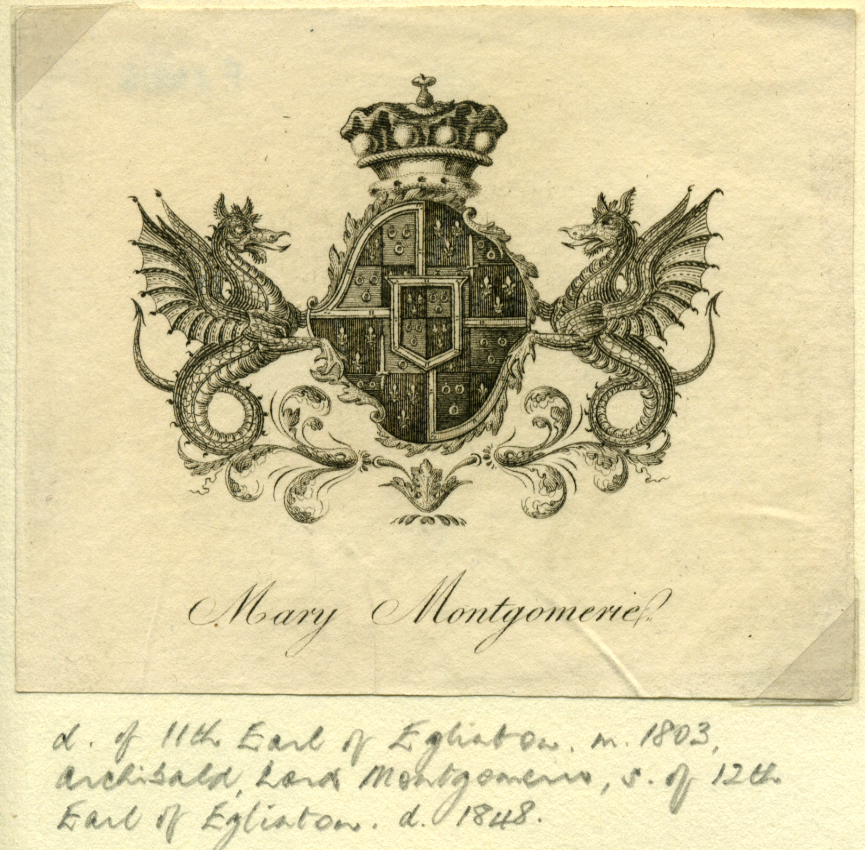 Mary Montgomerie
d. of 11th Earl of Eglinton. m. 1803,
Archibald, Lord Montgomerie, s. of 12th
Earl of Eglinton. d. 1848.